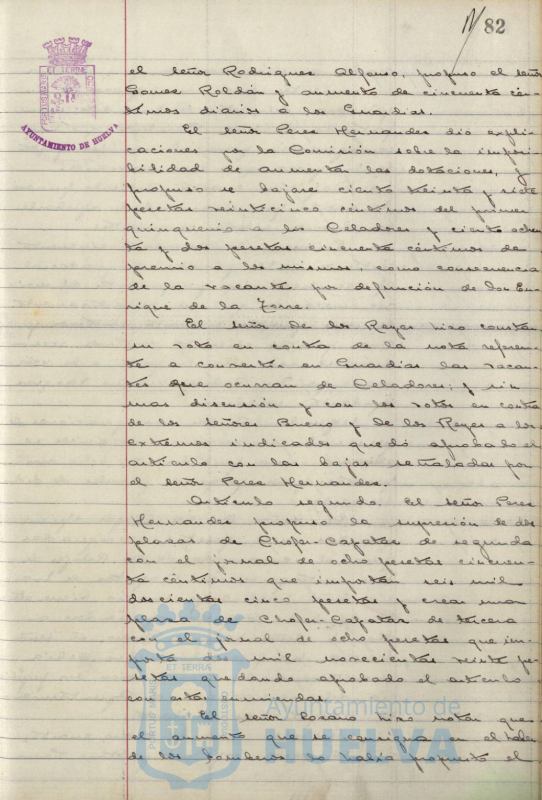 82
AYUNTAMIENTO DE HUELVA
el señor Rodriguez Alfonso, propuso el señor
Gomez Roldán y aumento de cincuenta cén-
timos diarios a los Guardias.
El señor Perez Hernandez dió expli-
caciones por la Comisión sobre la imposi-
bilidad de aumentar las dotaciones, y
propuso se bajase ciento treinta y siete
pesetas veinticinco céntimos del primer
quinquenio a los Celadores y ciento ochen-
ta y dos pesetas cincuenta céntimos de
premio a los mismos, como consecuencia
de la vacante por defunción de don En-
rique de la Torre.
El señor de los Reyes hizo constar
su voto en contra de la nota referen-
te a convertir en Guardias las vacan-
tes que ocurran de Celadores; y sin
mas discusión y con los votos en contra
de los señores Bueno y de los Reyes a los
extremos indicados quedó aprobado el
artículo con las bajas señaladas por
el señor Perez Hernandez.
Artículo segundo. El señor Perez
Hernandez propuso la supresión de dos
plazas de Chofer-Capataz de segunda
con el jornal de ocho pesetas cincuen-
ta céntimos que importan seis mil
doscientas cinco pesetas y crear una
plaza de Chofer-Capataz de tercera
con el jornal de ocho pesetas que im-
porta dos mil novecientas veinte pe-
setas quedando aprobado el artículo
con estas enmiendas.
El señor Lozano hizo notar que
el aumento que se consigna en el haber
de los bomberos lo había propuesto el
Ayuntamiento de
HUELVA